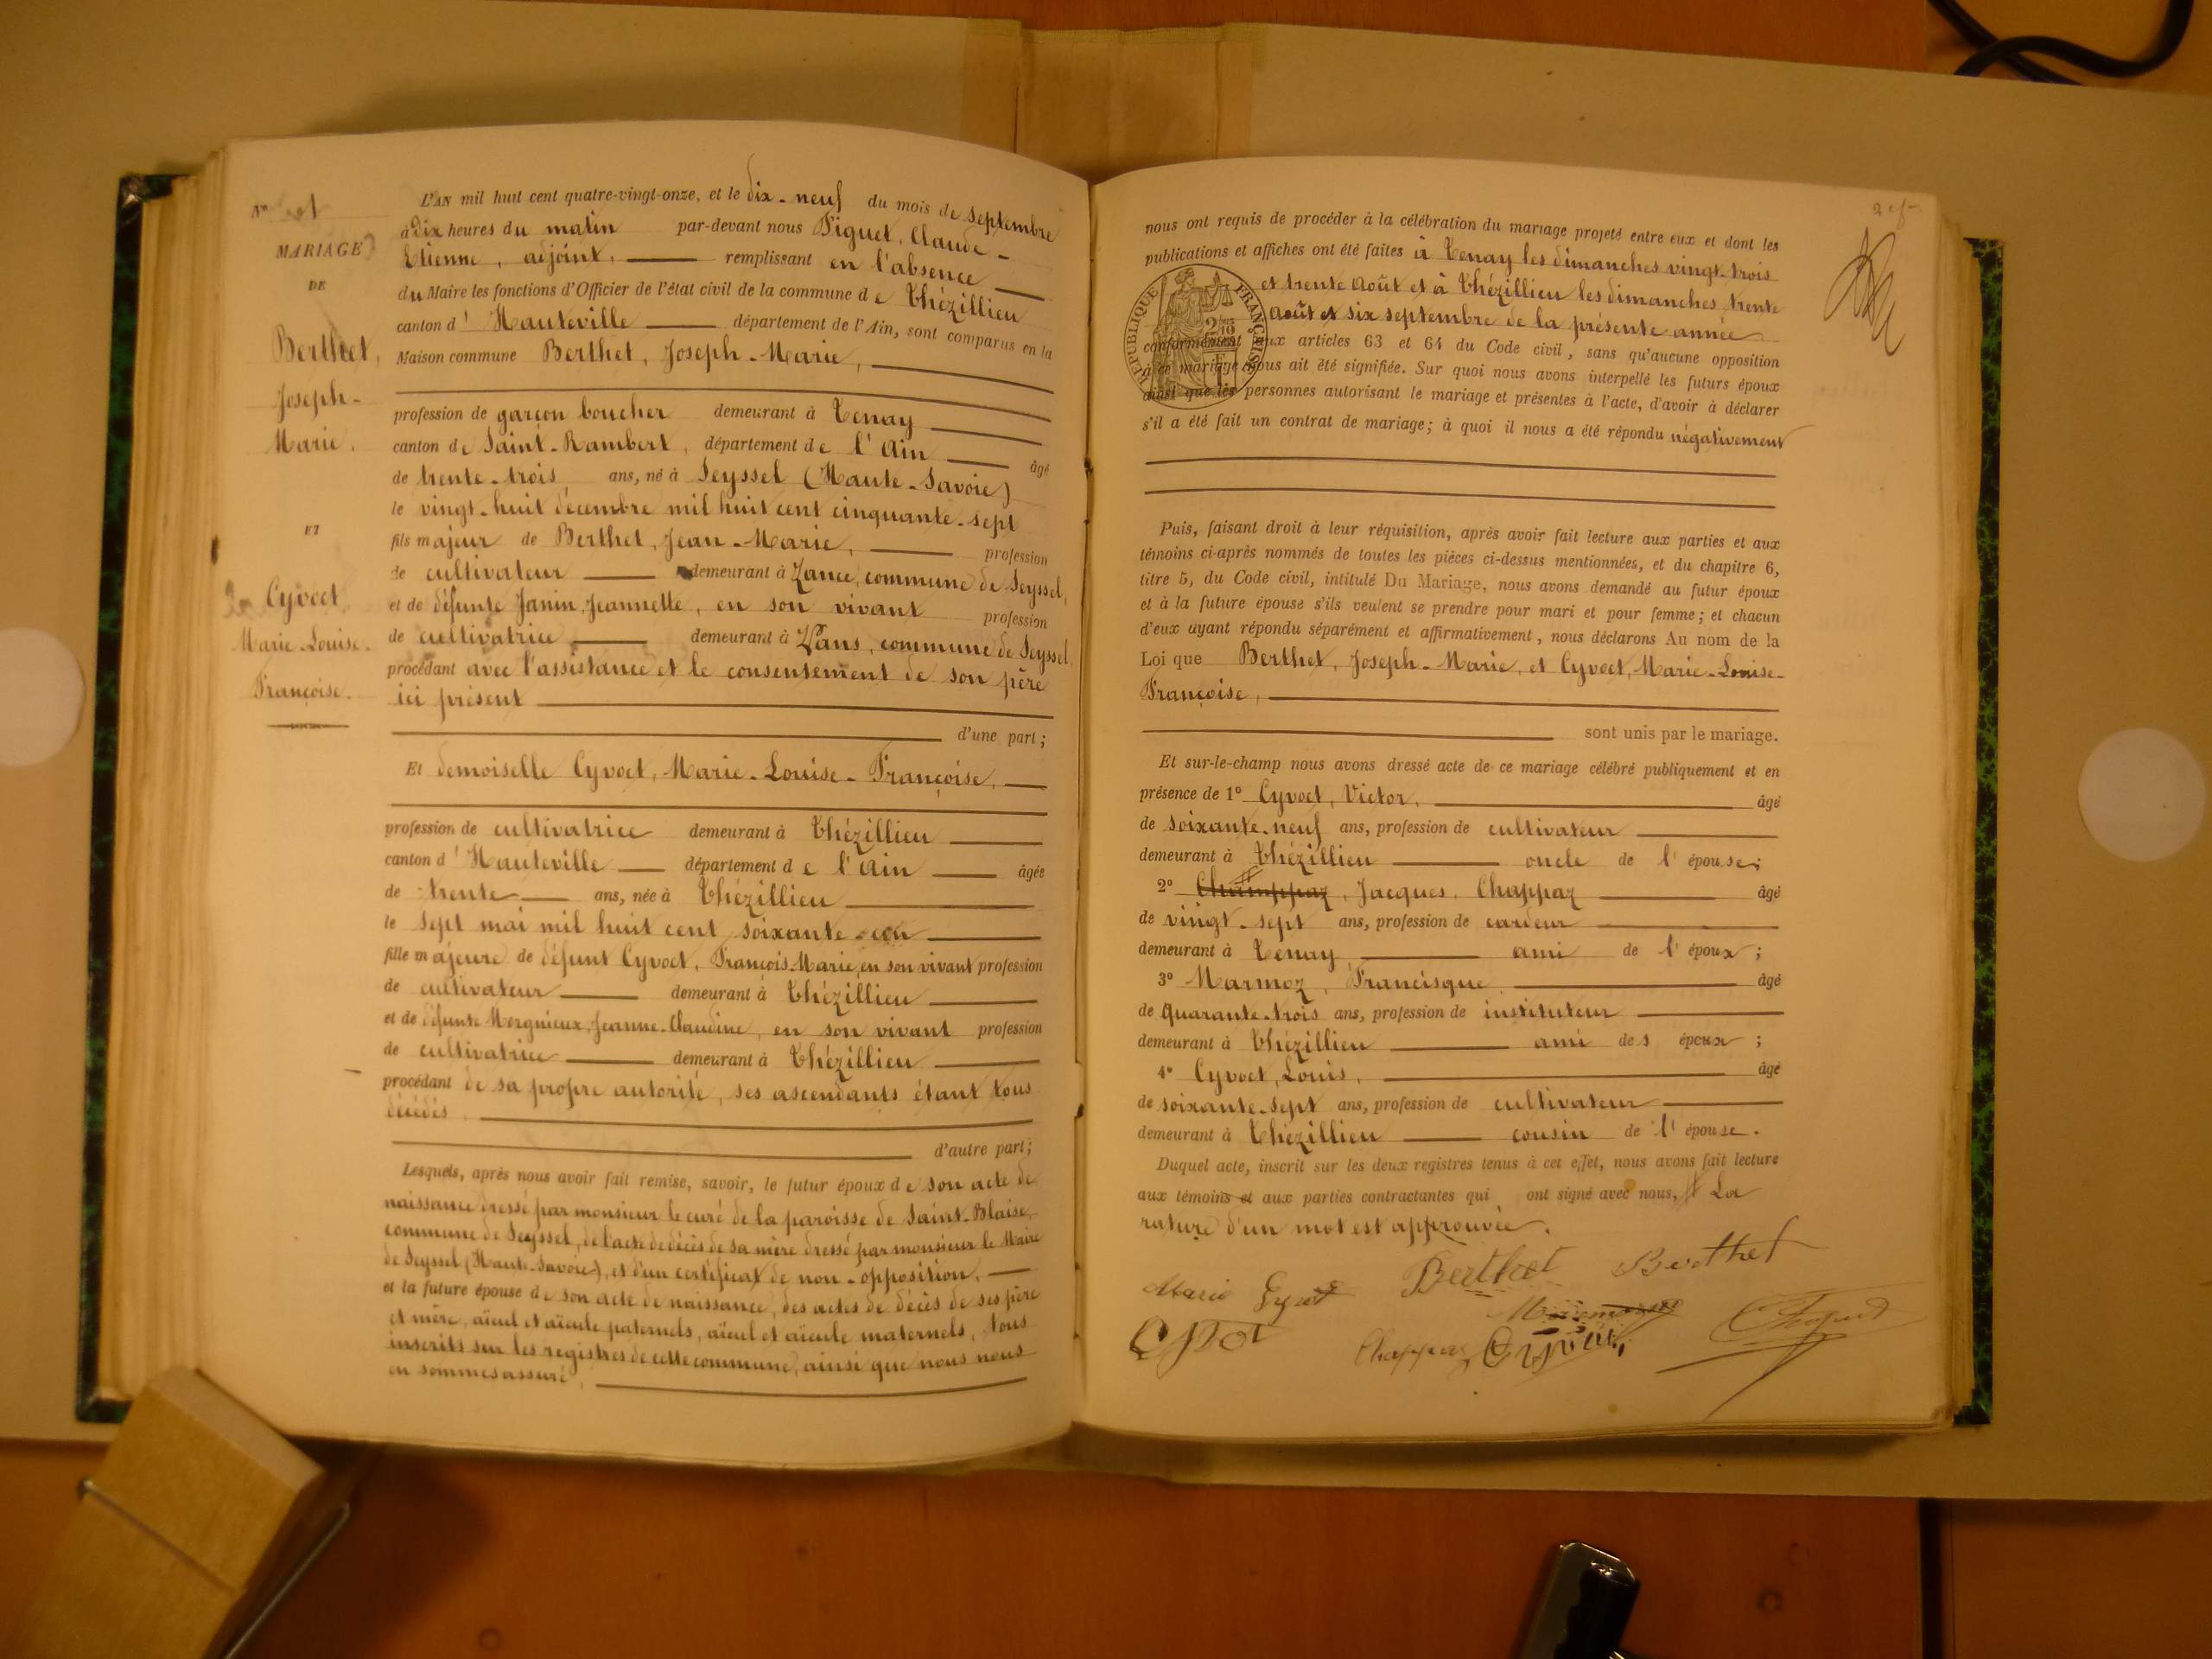 N°
MARIAGE
DE
Berthet,
Joseph-
Marie.
ET
Cyvoct
Marie-Louise-
Françoise.
L'AN mil huit cent quatre-vingt-onze, et le dix-neuf du mois de septembre
à dix heures du matin par-devant nous Piguet, Claude-
Etienne, adjoint, remplissant en l'absence
du Maire les fonctions d'Officier de l'état civil de la commune de Thézillieu
canton d'Hauteville département de l'Ain, sont comparus en la
Maison commune Berthet, Joseph-Marie,
profession de garçon boucher demeurant à Tenay
canton de Saint-Rambert, département de l'Ain âgé
de trente-trois ans, né à Seyssel (Haute-Savoie)
le vingt-huit décembre mil huit cent cinquante-sept
fils majeur de Berthet, Jean-Marie, profession
de cultivateur demeurant à commune de Seyssel,
et de défunte Janin, Jeannette, en son vivant profession
de cultivatrice demeurant à commune de Seyssel,
procédant avec l'assistance et le consentement de son père
ici présent
d'une part;
Et demoiselle Cyvoct, Marie-Louise-Françoise,
profession de cultivatrice demeurant à Thézillieu
canton d'Hauteville département de l'Ain âgée
de trente ans, née à Thézillieu
le sept mai mil huit cent soixante-un
fille majeure de défunt Cyvoct, François-Marie, en son vivant profession
de cultivateur demeurant à Thézillieu
et de défunte Morgnieux, Jeanne-Claudine, en son vivant profession
de cultivatrice demeurant à Thézillieu
procédant de sa propre autorité, ses ascendants étant tous
décédés.
d'autre part;
Lesquels, après nous avoir fait remise, savoir, le futur époux de son acte de
naissance dressé par monsieur le curé de la paroisse de Saint-Blaise,
commune de Seyssel, de l'acte de décès de sa mère dressé par monsieur le Maire
de Seyssel (Haute-Savoie), et d'un certificat de non-opposition,
et la future épouse de son acte de naissance, des actes de décès de ses père
et mère, aïeul et aïeule paternels, aïeul et aïeule maternels, tous
inscrits sur les registres de cette commune, ainsi que nous nous
en sommes assuré,
nous ont requis de procéder à la célébration du mariage projeté entre eux et dont les
publications et affiches ont été faites à Tenay les dimanches vingt-trois
et trente Août et à Thézillieu les dimanches trente
Août et six septembre de la présente année
conformément aux articles 63 et 64 du Code civil, sans qu'aucune opposition
à ce mariage nous ait été signifiée. Sur quoi nous avons interpellé les futurs époux
ainsi que les personnes autorisant le mariage et présentes à l'acte, d'avoir à déclarer
s'il a été fait un contrat de mariage; à quoi il nous a été répondu négativement
RÉPUBLIQUE FRANÇAISE
Puis, faisant droit à leur réquisition, après avoir fait lecture aux parties et aux
témoins ci-après nommés de toutes les pièces ci-dessus mentionnées, et du chapitre 6,
titre 5, du Code civil, intitulé Du Mariage, nous avons demandé au futur époux
et à la future épouse s'ils veulent se prendre pour mari et pour femme; et chacun
d'eux ayant répondu séparément et affirmativement, nous déclarons Au nom de la
Loi que Berthet, Joseph-Marie, et Cyvoct, Marie-Louise-
Françoise,
sont unis par le mariage.
Et sur-le-champ nous avons dressé acte de ce mariage célébré publiquement et en
présence de 1° Cyvoct, Victor, âgé
de soixante-neuf ans, profession de cultivateur
demeurant à Thézillieu oncle de l'épouse;
2° Champpaz, Jacques, Chappaz âgé
de vingt-sept ans, profession de cardeur
demeurant à Tenay ami de l'époux;
3° Marmoz, Francisque âgé
de quarante-trois ans, profession de instituteur
demeurant à Thézillieu ami des époux;
4° Cyvoct, Louis, âgé
de soixante-sept ans, profession de cultivateur
demeurant à Thézillieu cousin de l'épouse.
Duquel acte, inscrit sur les deux registres tenus à cet effet, nous avons fait lecture
aux témoins et aux parties contractantes qui ont signé avec nous, # La
rature d'un mot est approuvée.
Marie Berthet Berthet
Chappaz